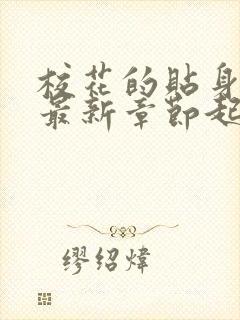 校花的貼身
最新章節起
缪绍炜